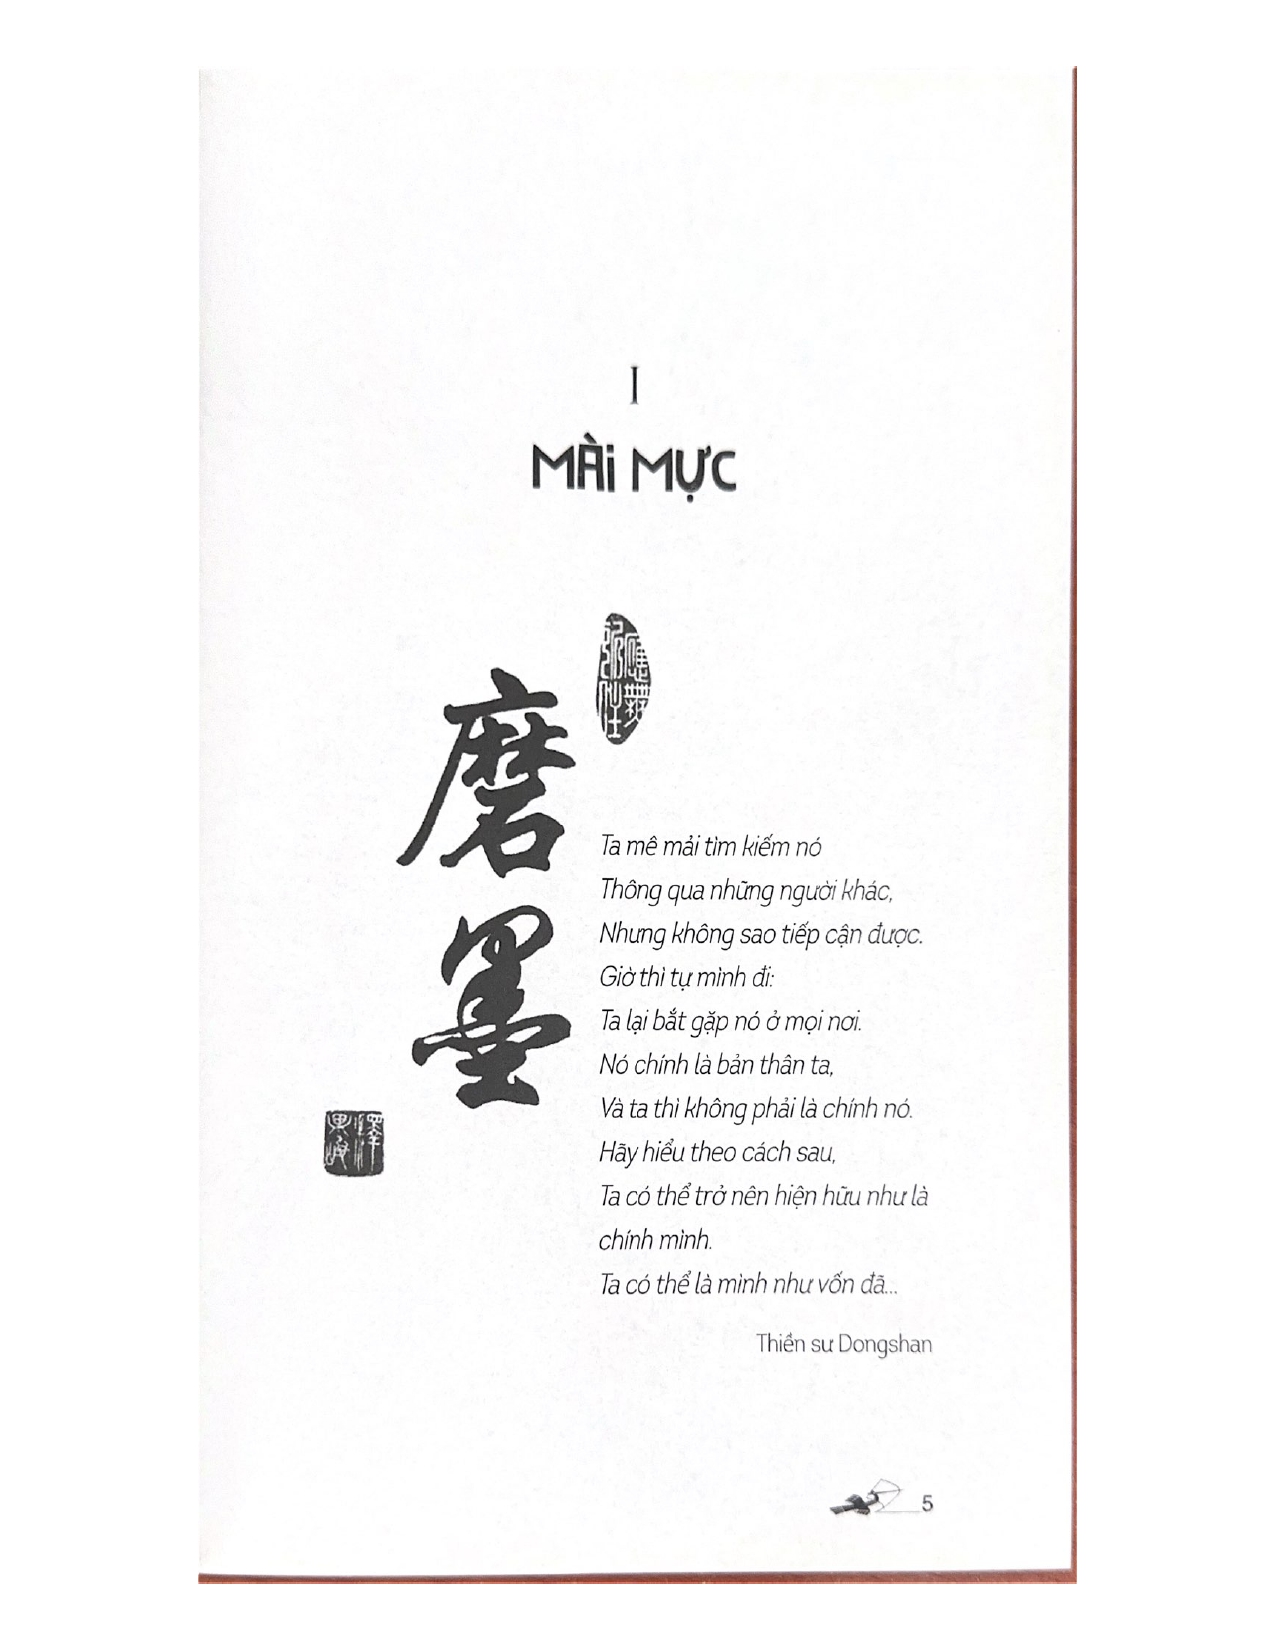 I
MÀI MỰC
磨墨
Ta mê mải tìm kiếm nó
Thông qua những người khác,
Nhưng không sao tiếp cận được.
Giờ thì tự mình đi:
Ta lại bắt gặp nó ở mọi nơi.
Nó chính là bản thân ta,
Và ta thì không phải là chính nó.
Hãy hiểu theo cách sau,
Ta có thể trở nên hiện hữu như là
chính mình.
Ta có thể là mình như vốn đã...
Thiền sư Dongshan
5